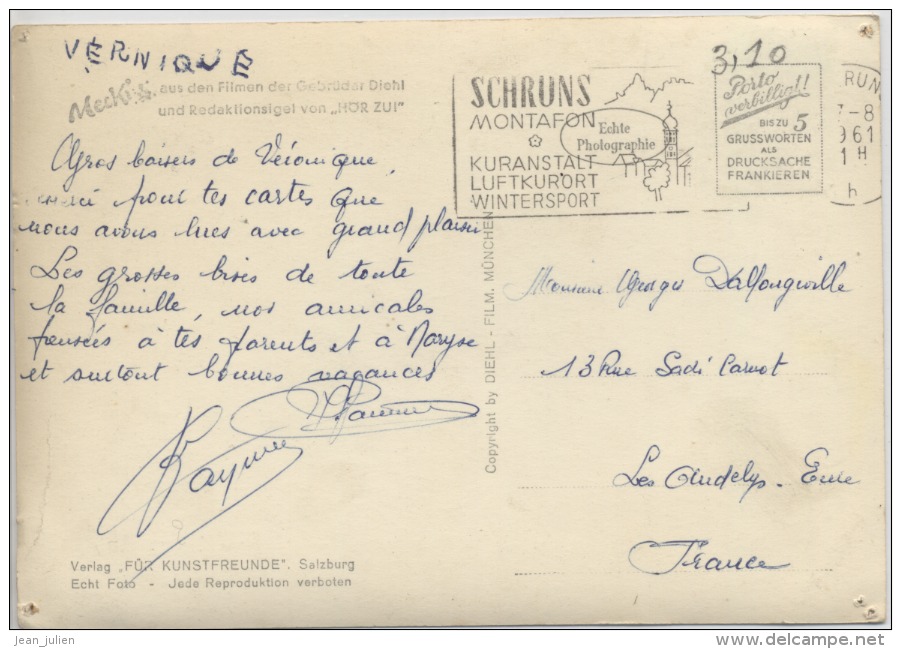 VÉRNIQUE
3,10
Mecki
aus den Filmen der Gebrüder Diehl
und Redaktionsigel von „HÖR ZU!"
SCHRUNS
MONTAFON
KURANSTALT
LUFTKURORT
WINTERSPORT
Echte
Photographie
Porto
verbilligt!
BIS ZU 5
GRUSSWORTEN
ALS
DRUCKSACHE
FRANKIEREN
RUN
7-8
961
1 H
h
Gros baisers de Véronique
merci pour tes cartes que
nous avons lues avec grand plaisir
Les grosses bises de toute
la famille, nos amicales
pensées à tes parents et à Maryse
et surtout bonnes vacances
Copyright by DIEHL - FILM. MÜNCHEN
Monsieur Georges Dallongeville
13 Rue Sadi Carnot
Les Andelys - Eure
France
Verlag „FÜR KUNSTFREUNDE". Salzburg
Echt Foto - Jede Reproduktion verboten
jean_julien
www.delcampe.net